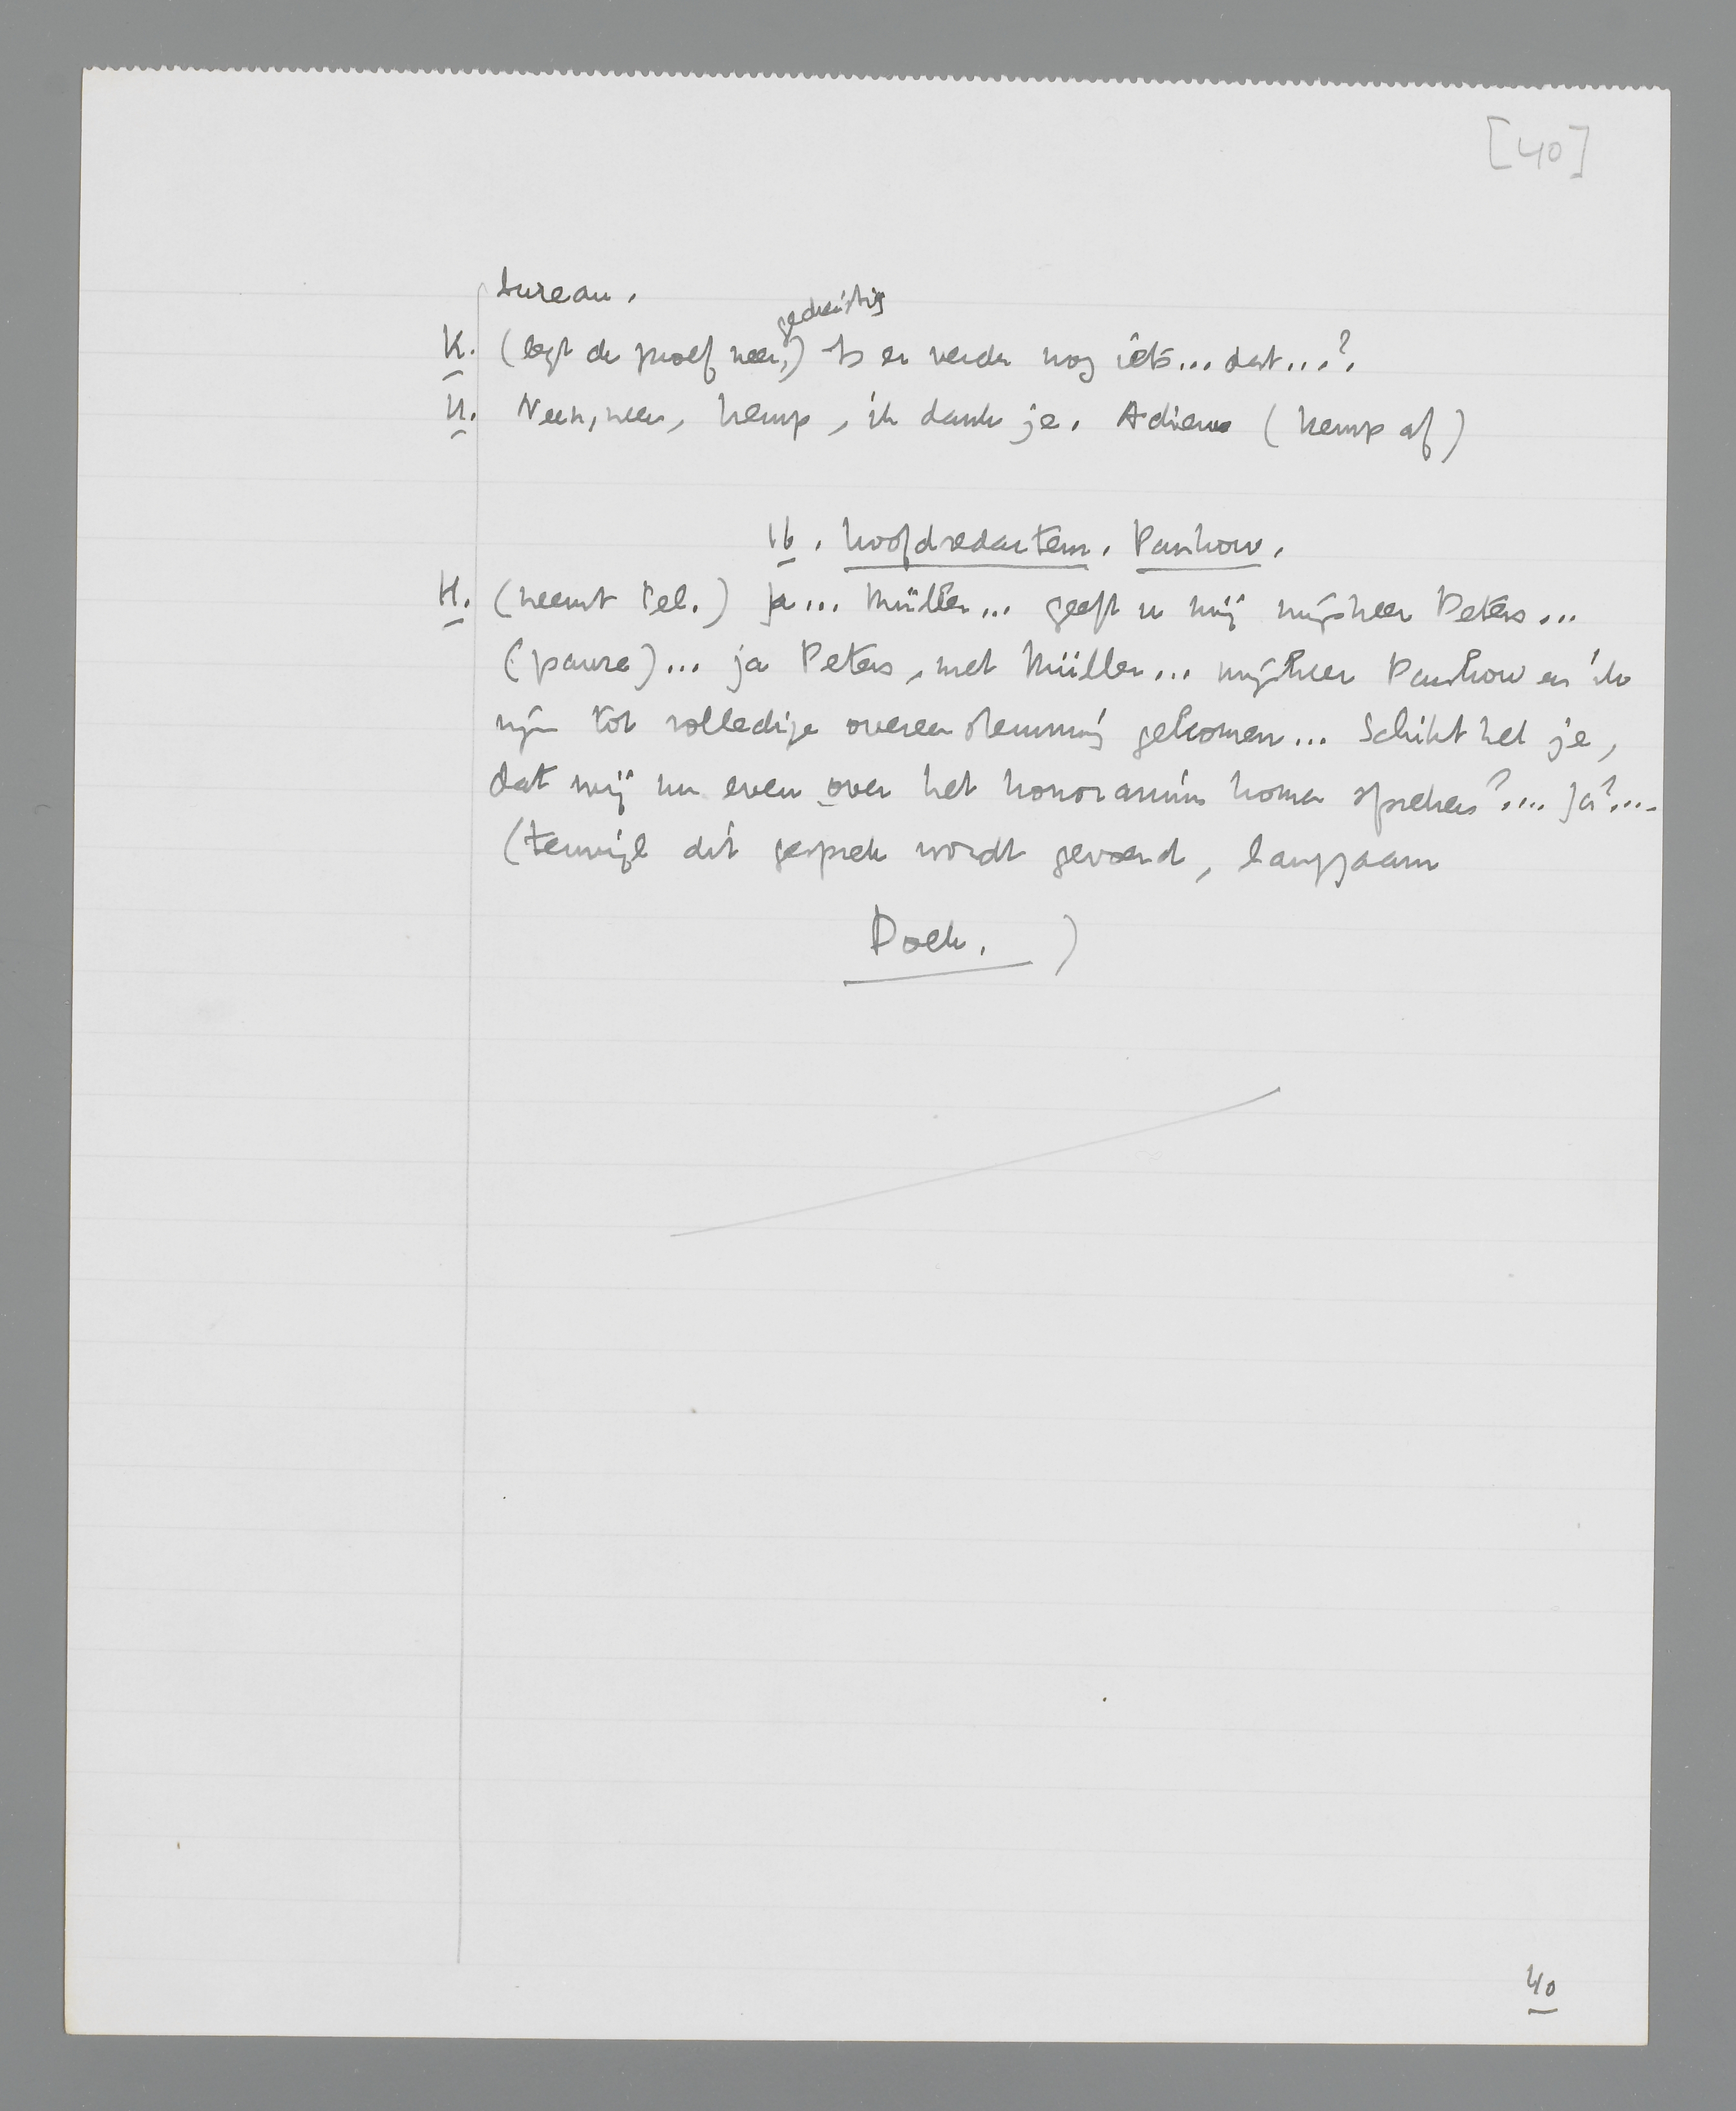 [40]
bureau.
gedienstig
K. (legt de proef neer,) Is er verder nog iets... dat...?
H. Neen, neen, Kemp, ik dank je. Adieu (Kemp af)
16. Hoofdredacteur. Pankow.
H. (neemt tel.) Ja... Müller... geeft u mij mijnheer Peters...
(pauze)... ja Peters, met Müller... mijnheer Pankow en ik
zijn tot volledige overeenstemming gekomen... Schikt het je,
dat wij nu even over het honorarium komen spreken?... Ja?....
(terwijl dit gesprek wordt gevoerd, langzaam
Doek. )
40